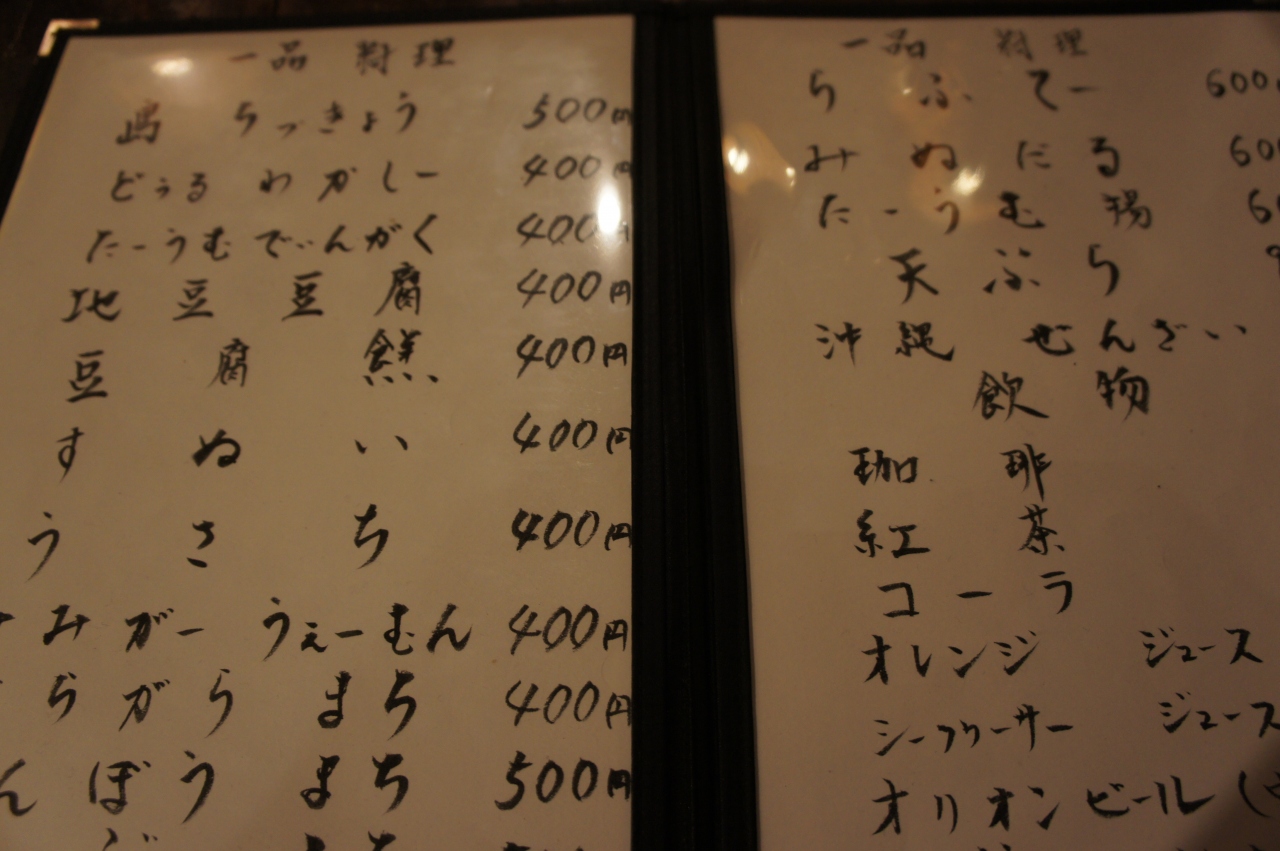 一品 料理
島 らっきょう 500円
どぅる わかしー 400円
たーうむでぃんがく 400円
地豆豆腐 400円
豆腐 400円
すぬい 400円
うさち 400円
みみがー うぇーむん 400円
がら まち 400円
んぼう まち 500円
一品 料理
らふてー 600
みぬだる 60
たーうむ揚 6
天ぷら
沖縄ぜんざい
飲物
珈琲
紅茶
コーラ
オレンジ ジュース
シークヮーサー ジュース
オリオンビール (